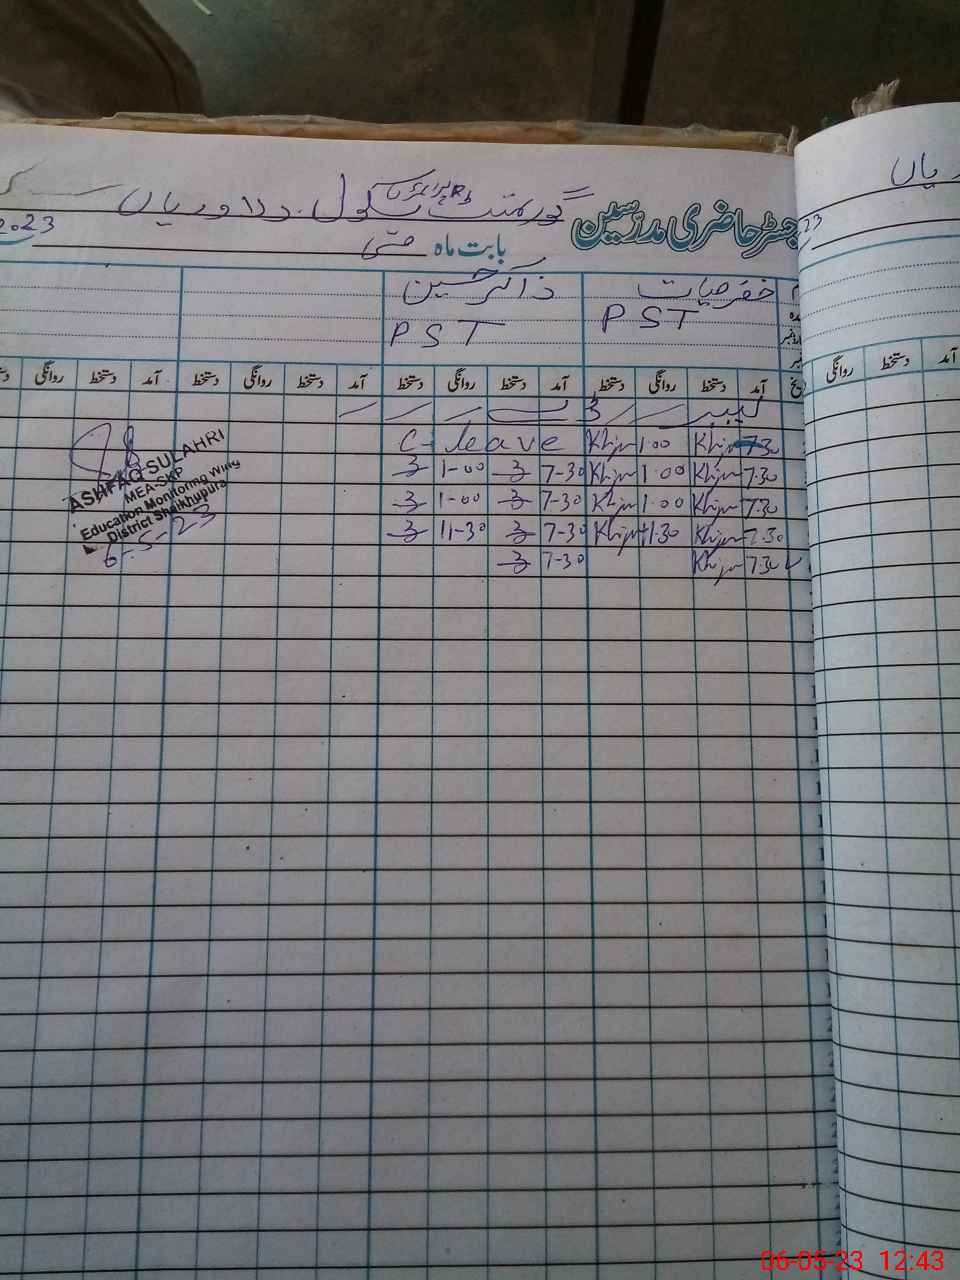 گورنمنٹ پرائمری سکول
رجسٹر حاضری مدرسین
بابت ماہ مئی 2023
خضر حیات
ذاکر حسین
PST
PST
آمد دستخط روانگی دستخط آمد دستخط روانگی دستخط آمد دستخط روانگی دستخط آمد دستخط روانگی
لیبر ڈے
7.30 Khizr 1.00 Khizr C-leave
7.30 Khizr 1.00 Khizr 7-30 1-00
7.30 Khizr 1.00 Khizr 7-30 1-00
7.30 Khizr 11.30 Khizr 7-30 11-30
7.30 Khizr 7-30
ASHFAQ-SULAHRI
MEA-SKP
Education Monitoring Wing
District Shaikhupura
6-5-23
ریاں
23
آمد دستخط روانگی
06-05-23 12:43